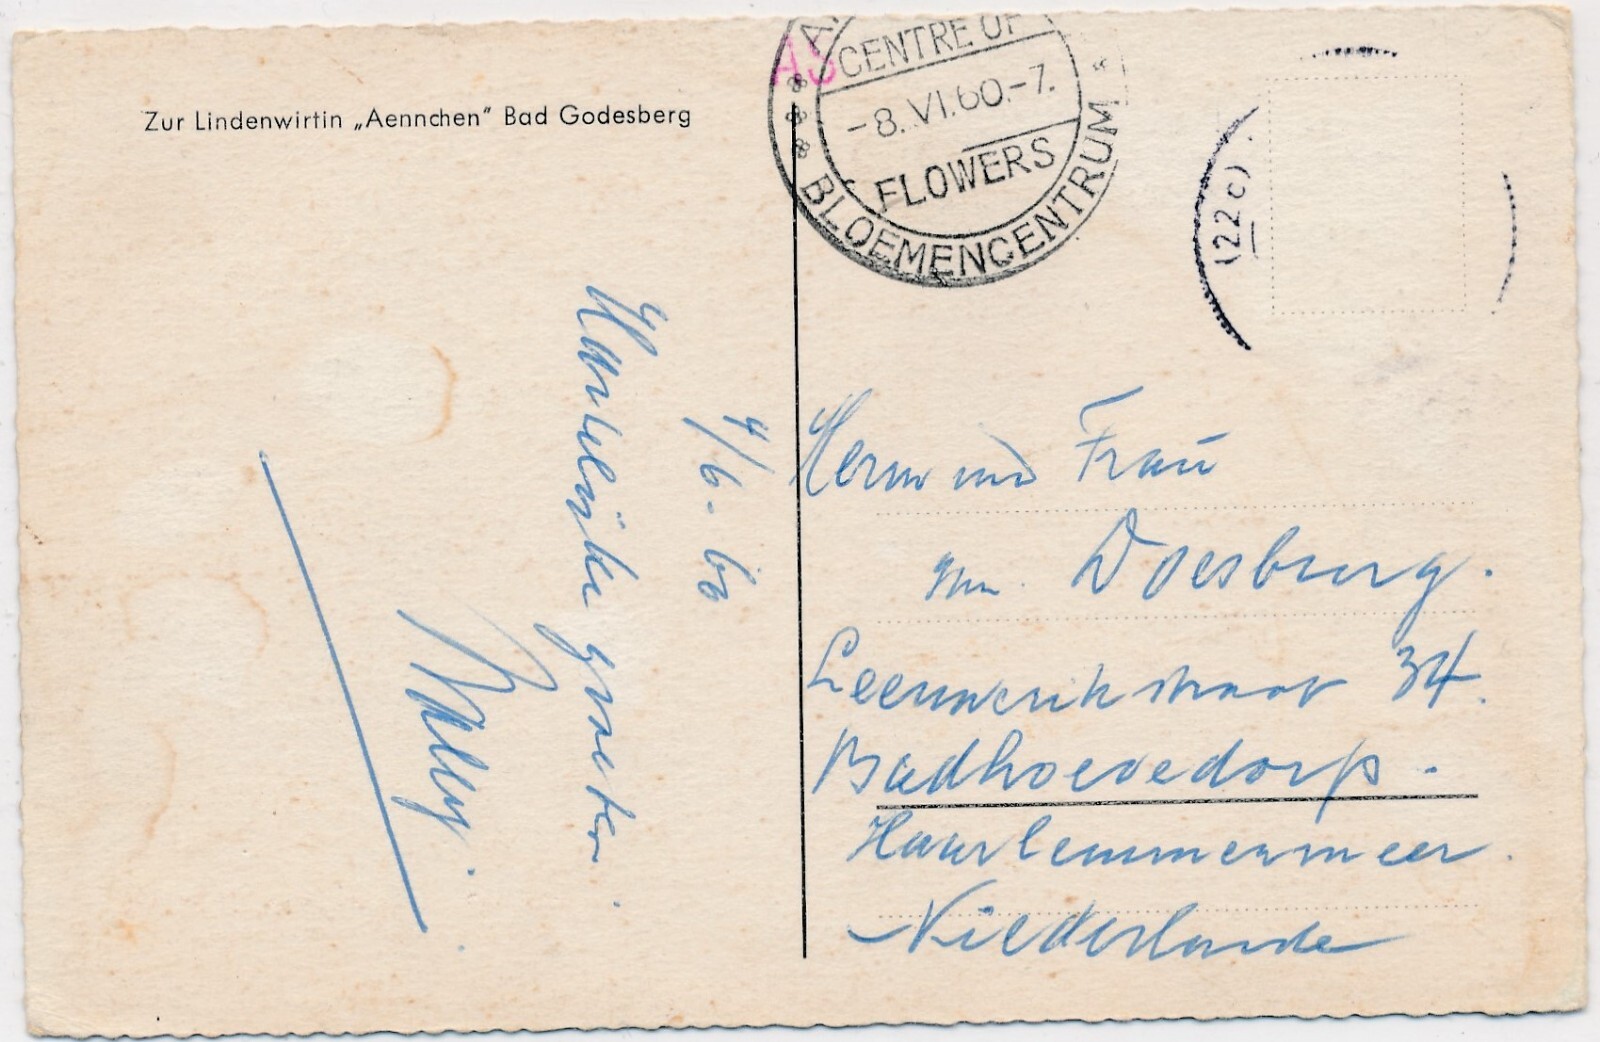 Zur Lindenwirtin „Aennchen" Bad Godesberg
AS
A
CENTRE OF
-8.VI.60.-7.
FLOWERS
BLOEMENCENTRUM
(22c)
4/6-60
Herrn und Frau
van Doesburg.
Leeuwerikstraat 34.
Badhoevedorp.
Haarlemmermeer.
Niederlande